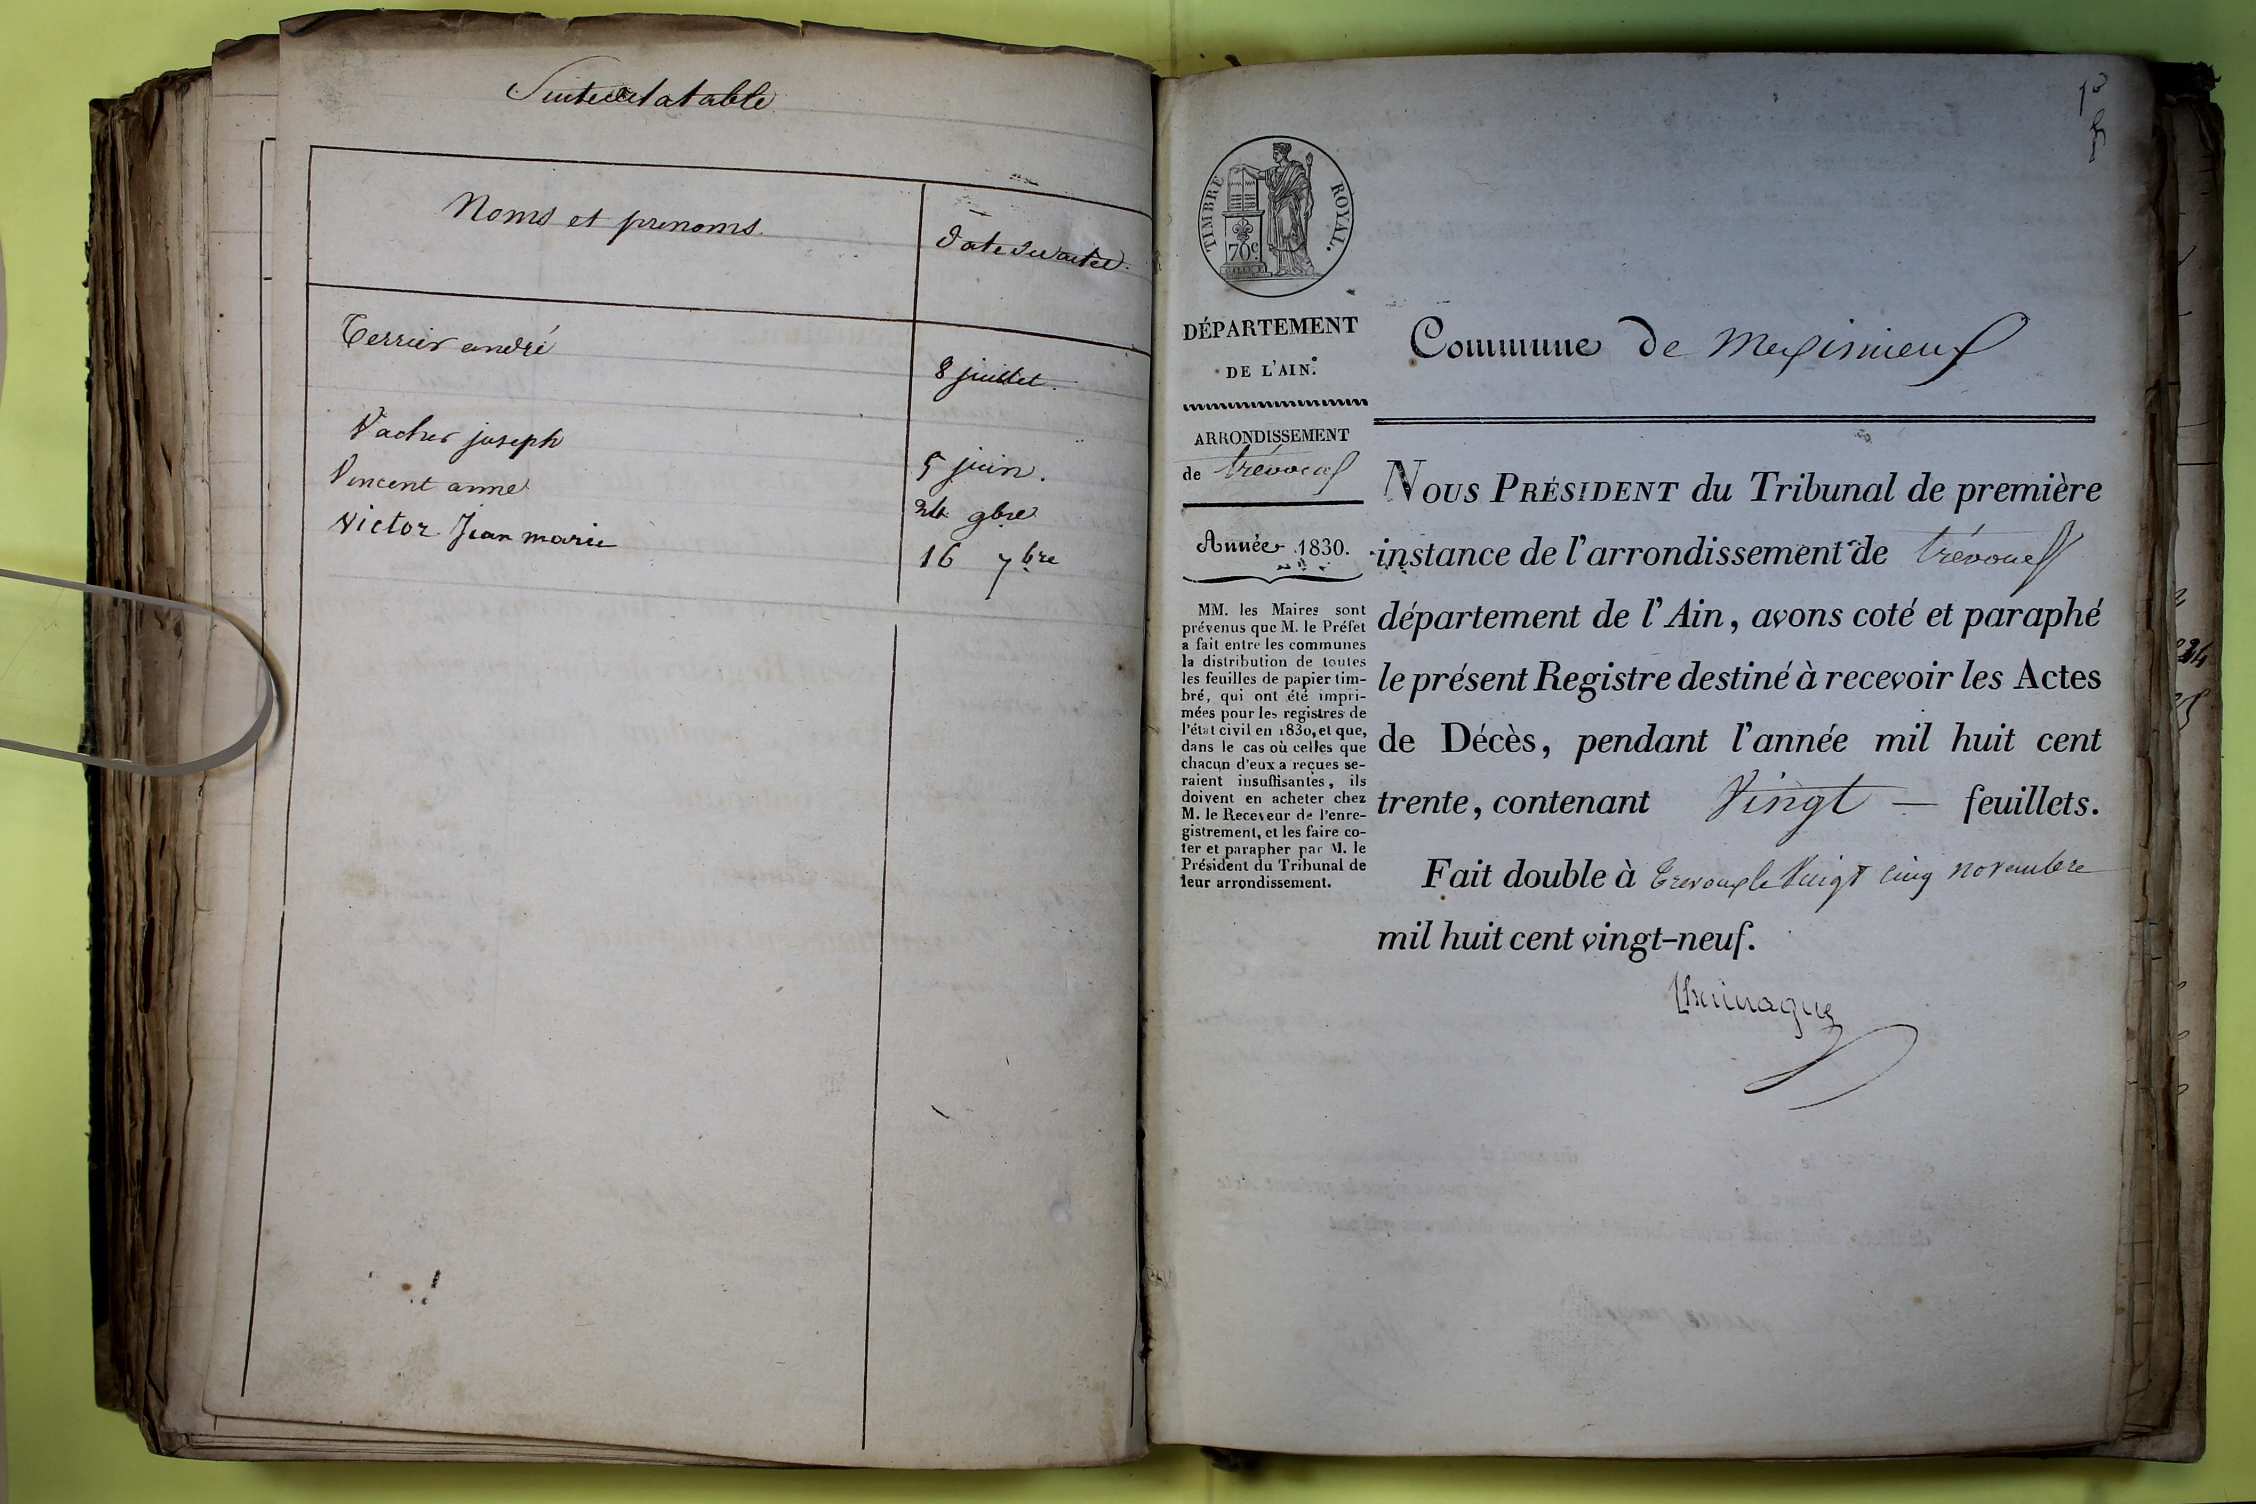 Suite de la table
Noms et prenoms
date du acte
Terrier andré
8 juillet.
Vacher joseph
5 juin.
Vincent anne
24 9bre
Victor Jean marie
16 7bre
TIMBRE ROYAL.
70c
DÉPARTEMENT
DE L'AIN.
ARRONDISSEMENT
de trévoux
Année 1830.
MM. les Maires sont
prévenus que M. le Préfet
a fait entre les communes
la distribution de toutes
les feuilles de papier tim-
bré, qui ont été impri-
mées pour les registres de
l'état civil en 1830, et que,
dans le cas où celles que
chacun d'eux a reçues se-
raient insuffisantes, ils
doivent en acheter chez
M. le Receveur de l'enre-
gistrement, et les faire co-
ter et parapher par M. le
Président du Tribunal de
leur arrondissement.
Commune de Meximieux
NOUS PRÉSIDENT du Tribunal de première
instance de l'arrondissement de trévoux
département de l'Ain, avons coté et paraphé
le présent Registre destiné à recevoir les Actes
de Décès, pendant l'année mil huit cent
trente, contenant Vingt — feuillets.
Fait double à Trevoux le Vingt cinq novembre
mil huit cent vingt-neuf.